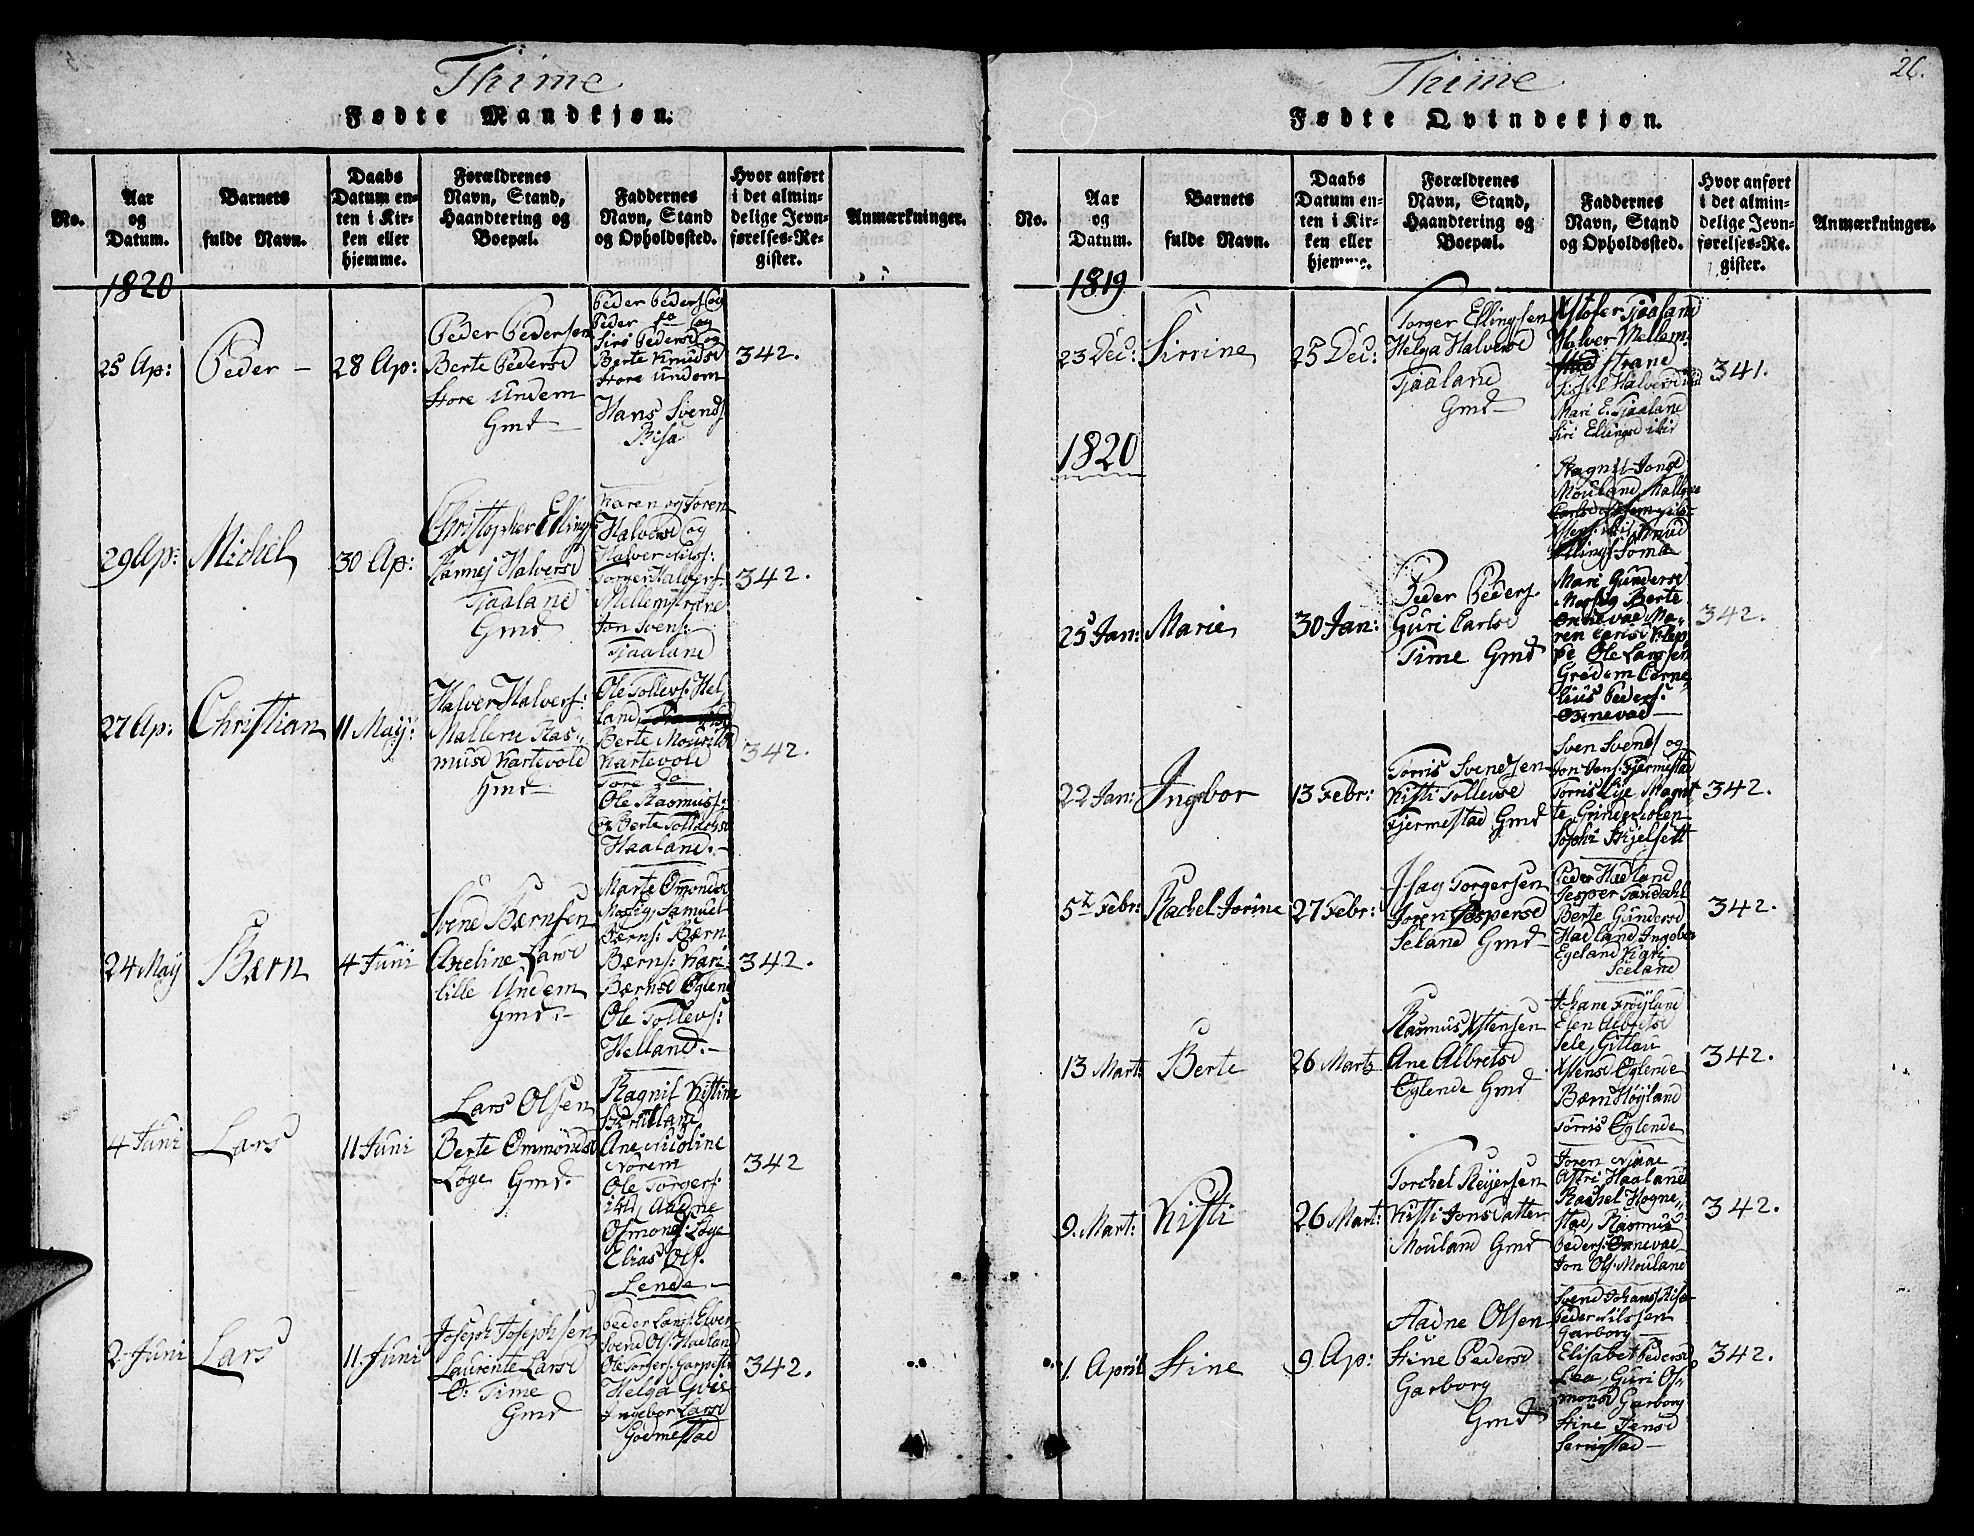 Thime
Fødte Mandkjøn.
No.
Aar
og
Datum.
Barnets
fulde Navn.
Daabs
Datum en-
ten i Kir-
ken eller
hjemme.
Forældrenes
Navn, Stand,
Haandtering og
Boepæl.
Faddernes
Navn, Stand
og Opholdssted.
Hvor anført
i det almin-
delige Jevn-
førelses-Re-
gister.
Anmærkninger.
1820
25 Ap:
Peder
28 Ap:
Peder Pedersen
Berte Pedersd
Store Undem
Gmd
Peder Peders og
Peder do og
Siri Pedersd og
Berte Knudsd
Store Undem
Hans Svends
Risa
342.
29 Ap:
Michel
30 Ap:
Christopher Ellings
Rannej Halversd
Tjaaland
Gmd
Karen og Joren
Halversd og
Halver Nils:
Torger Halvers
Mellemstrane
Jon Svens:
Tjaaland
342.
27 Ap:
Christian
11 May:
Halver Halvers:
Mallene Ras-
musd Kartevold
Gmd
Ole Tollevs: Hel
land
Berte Mouritsd
Kartevold
Tore do
Ole Rasmus:
og Berte
Haaland.
342.
24 May
Bærn
4 Juni
Svend Bærnsen
Axeline Larsd
lille Undem
Gmd.
Marte Omonds
Samuel
Bærns: Bærn
Bærns: Kari
Bærnsd Øglend
Ole Tollevs:
Helland.
342.
4 Juni
Lars
11 Juni
Lars Olsen
Berte Ommondsd
Løge Gmd.
Ragnil Kistine
Ane Nicoline
Norem
Ole Torgers:
ibid, Aadne
Osmons: Løge
Elias Ols.
Lende
342
2 Juni
Lars
11 Juni
Joseph Josephsen
Laurente Larsd
O: Time
Gmd
Peder Lars: Elven
Svend Ols: Haeland
Ole Torgers:
Helga
Ingebor Larsd
Godmestad
342.
Thime
26.
Fødte Qvindekjøn.
No.
Aar
og
Datum.
Barnets
fulde Navn.
Daabs
Datum en-
ten i Kir-
ken eller
hjemme.
Forældrenes
Navn, Stand,
Haandtering og
Boepæl.
Faddernes
Navn, Stand
og Opholdssted.
Hvor anført
i det almin-
delige Jevn-
førelses-Re-
gister.
Anmærkninger.
1819
23 Dec:
Sirrine
25 Dec:
Torger Ellingsen
Helga Halversd
Tjaaland
Gmd
Xstofer Tjaaland
Halver Mellem
strane
Halversd ibid
Mari E. Tjaaland
Siri Ellingsd ibid
341.
1820
25 Jan:
Marie
30 Jan:
Peder Peders.
Guri Carlsd
Time Gmd
Ragnil Jonsd
Mouland Mallene
Knud
Ellings Soma
Mari Gundersd
Berte
Ønnevad Ma-
ren Carlsd Klep
pe Ole Larssen
Grødem Corne-
lius Peders:
Ønnevad
342.
22 Jan:
Ingbor
13 Febr:
Torris Svendsen
Kisti Tollevsd
Fjermestad Gmd
Sven Svends og
Jon Jens: Fjermestad
Torris Lye Magret
te
Sophi Kjelsett
342.
5te Febr:
Rachel Jorine
27 Febr:
Torgersen
Joren Jespersd
Seland Gmd
Peder Hadland
Jesper Tandahl
Berte Gundersd
Hadland Ingebor
Egeland Kari
Seland
342.
13 Mart:
Berte
26 Marts
Rasmus Xstensen
Ane Albretsd
Øglende Gmd
Johane Frøyland
Elen Albretsd
Sele, Gittau
Xstensd Øglende
Bærn Høyland
Torris Øglende
342.
9. Mart:
Kisti
26 Mart:
Torchel Reyersen
Kisti Jonsdatter
Mouland Gmd
Joren Njaae
Astri Haaland
Rachel Hogne-
stad, Rasmus
Peders: Ønnevad
Jon Ols: Mouland
342.
1 April
Stine
9 Ap:
Aadne Olsen
Stine Pedersd
Garborg
Gmd
Svend Johans: Risa
Peder Nilssen
Garborg
Elisabet Pedersd
Lea, Guri Os-
monsd Garborg
Stine Jensd
342.